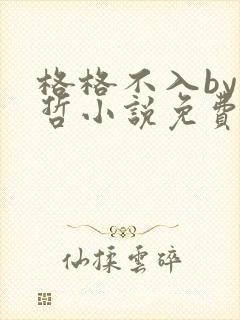 格格不入by
哲小説免費
仙揉雲碎